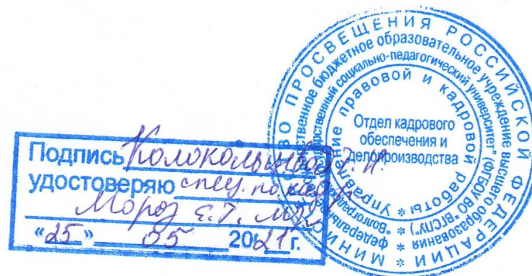 МИНИСТЕРСТВО ПРОСВЕЩЕНИЯ РОССИЙСКОЙ ФЕДЕРАЦИИ
федеральное государственное бюджетное образовательное учреждение высшего образования
"Волгоградский государственный социально-педагогический университет" (ФГБОУ ВО "ВГСПУ")
Управление правовой и кадровой работы
Отдел кадрового
обеспечения и
делопроизводства
Подпись
удостоверяю спец. по кадрам
Мороз Е.
«25» 05 2021 г.